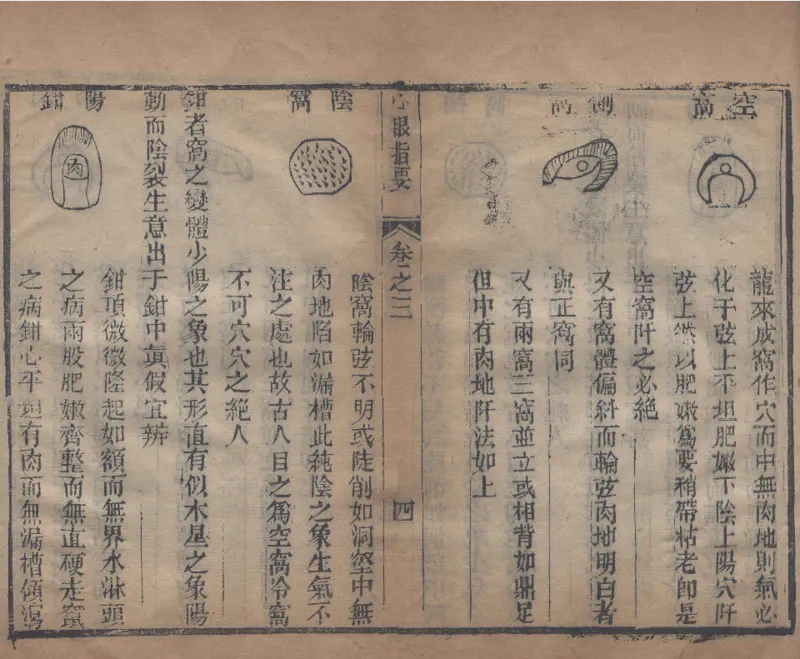 空窩
龍來成窩作穴而中無肉地則氣必
化于弦上平坦肥嫩下陰上陽穴阡
弦上然以肥嫩爲要稍帶枯老即是
空窩阡之必絕
側窩
又有窩體偏斜而輪弦肉地明白者
與正窩同
又有兩窩三窩並立或相背如鼎足
但中有肉地阡法如上
心眼指要
卷之三
四
陰窩
陰窩輪弦不明或陡削如洞壑中無
肉地陷如漏槽此純陰之象生氣不
注之處也故古人目之爲空窩冷窩
不可穴穴之絕人
鉗者窩之變體少陽之象也其形直有似木星之象陽
動而陰裂生意出于鉗中眞假宜辨
陽鉗
肉
鉗頂微微隆起如額而無界水淋頭
之病兩股肥嫩齊整而無直硬走竄
之病鉗心平坦有肉而無漏槽傾瀉